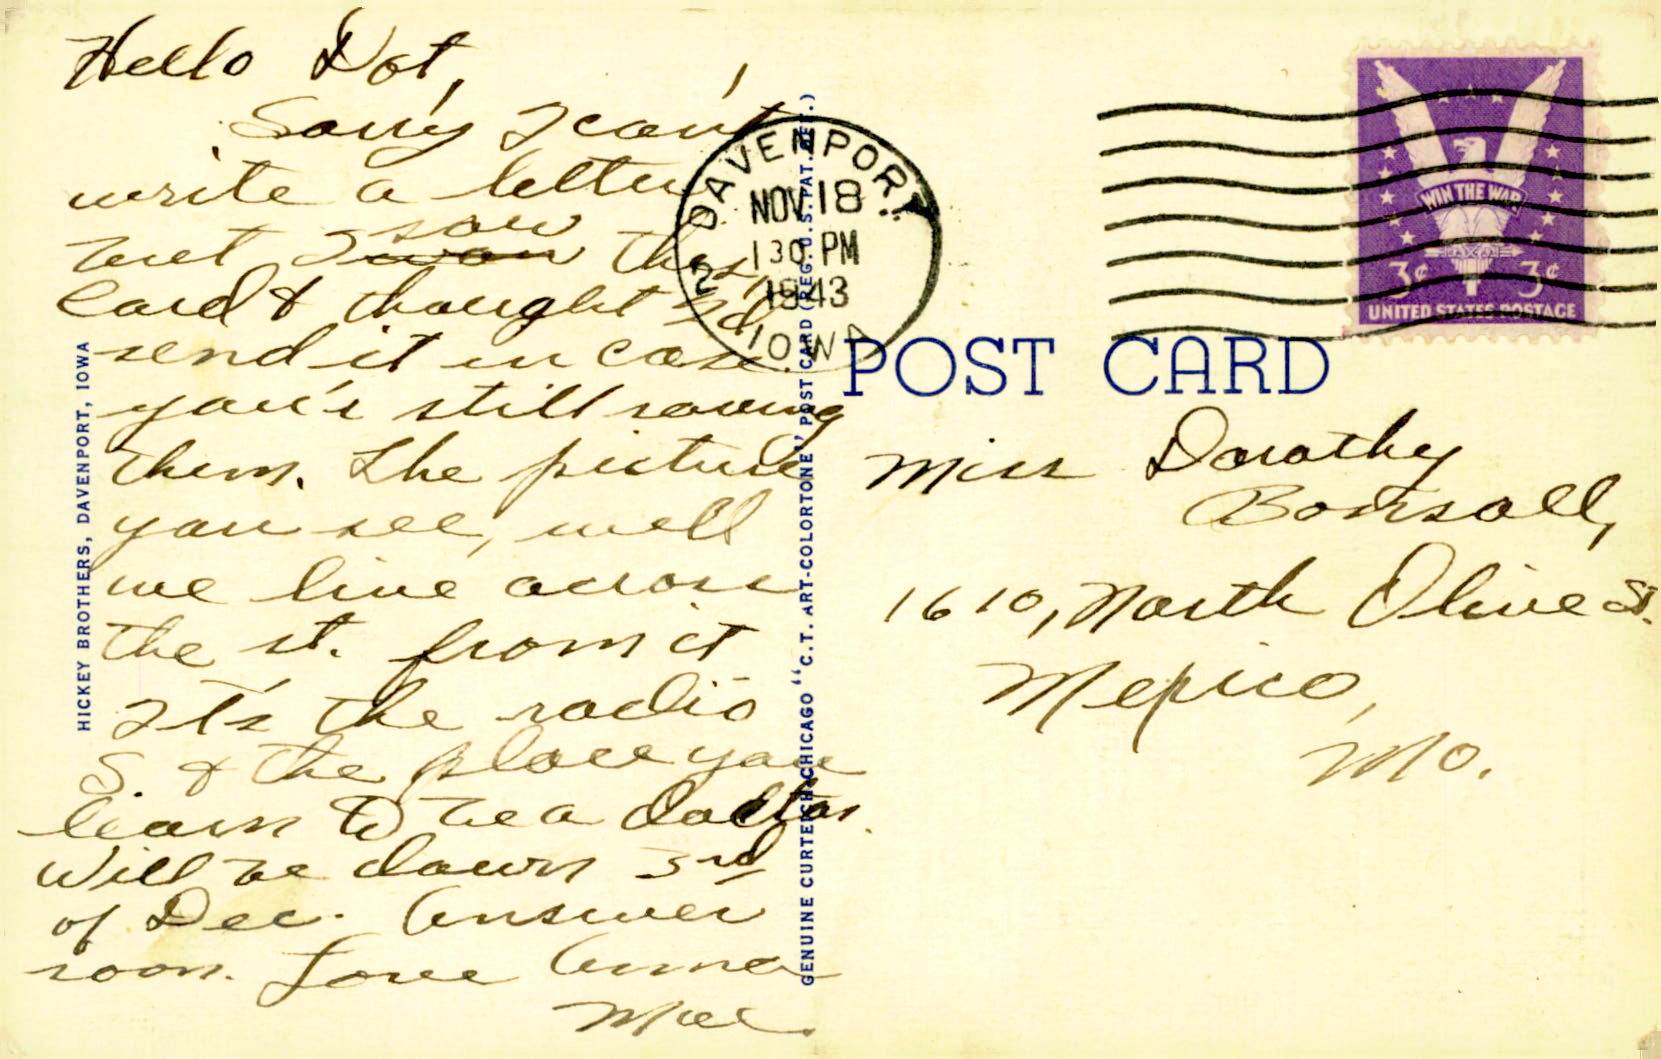 Hello Dot,
Sorry I can't
write a letter
but I saw this
card & thought I'd
send it in case
you'r still saving
them. The picture
you see, well
we live across
the st. from it
It's the radio
S. & the place you
learn to be a doctor.
Will be down 3rd
of Dec. Answer
soon. Love Anna
Mae.
HICKEY BROTHERS, DAVENPORT, IOWA
GENUINE CURTEICH-CHICAGO "C.T. ART-COLORTONE" POST CARD (REG. U.S. PAT. OFF.)
DAVENPORT
NOV 18
1 30 PM
1943
2
IOWA
WIN THE WAR
3¢ 3¢
UNITED STATES POSTAGE
POST CARD
Miss Dorothy
Bonsall,
1610, North Olive St.
Mexico,
Mo.